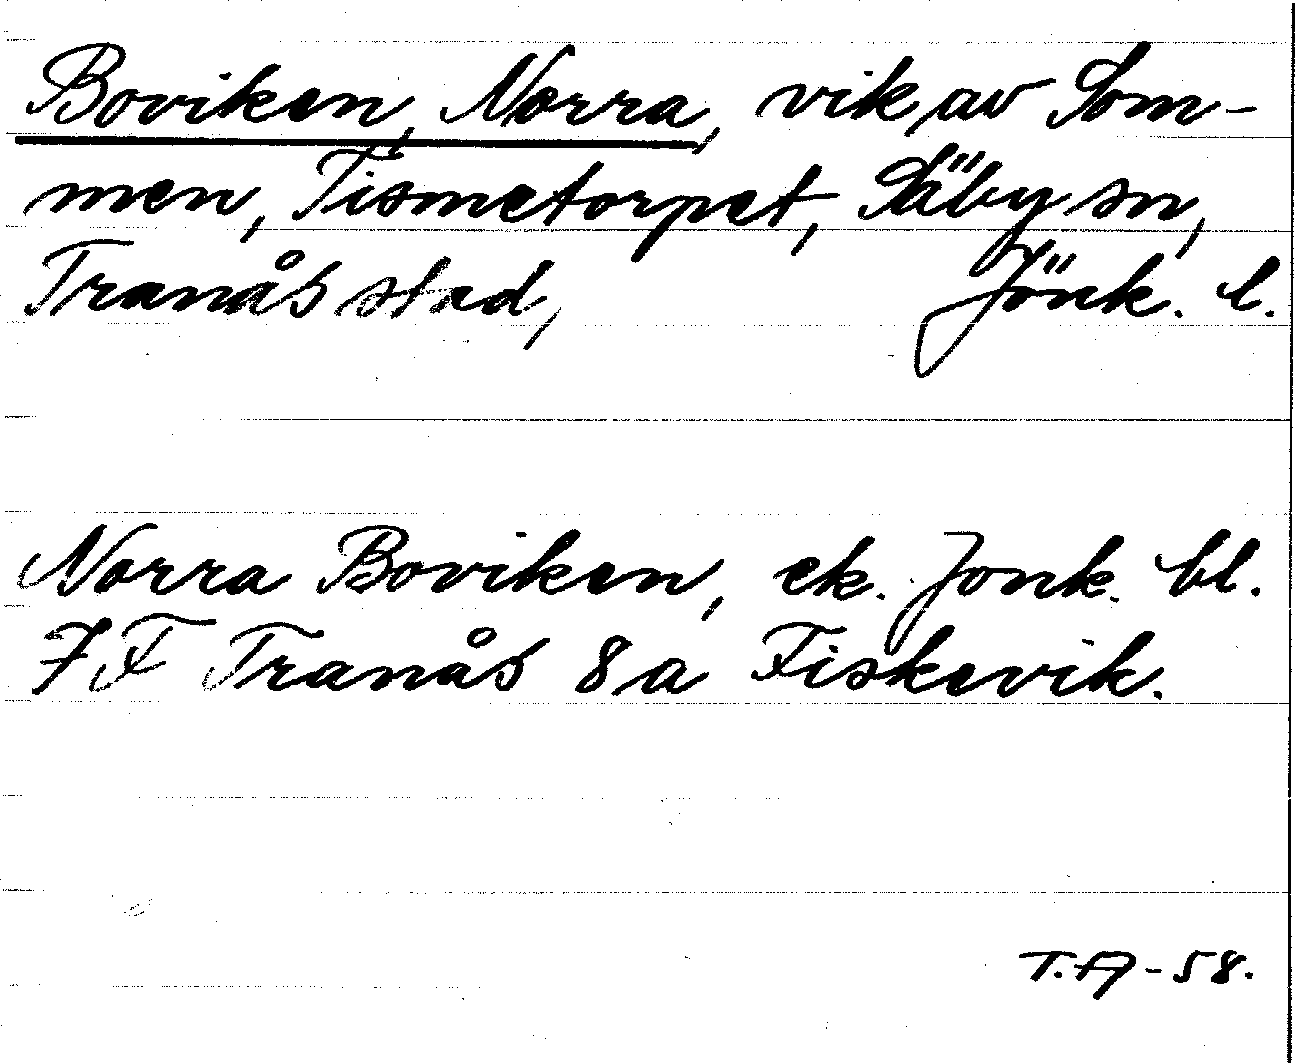 Boviken, Norra, vik av Som-
men, Tismetorpet, Säby sn,
Tranås stad, Jönk. l.
Norra Boviken, ek. Jönk. bl.
7F Tranås 8a Fiskevik.
T.A-58.